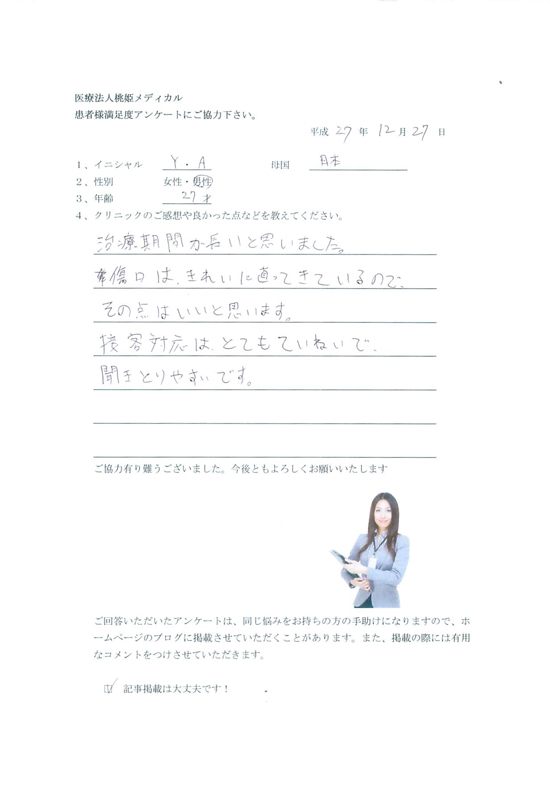 医療法人桃姫メディカル
患者様満足度アンケートにご協力下さい。
平成 27 年 12 月 27 日
1、イニシャル Y・A 母国 日本
2、性別 女性・男性
3、年齢 27才
4、クリニックのご感想や良かった点などを教えてください。
治療期間が長いと思いました。
傷口は、きれいに直ってきているので、
その点はいいと思います。
接客対応は、とてもていねいで、
聞きとりやすいです。
ご協力有り難うございました。今後ともよろしくお願いいたします
ご回答いただいたアンケートは、同じ悩みをお持ちの方の手助けになりますので、ホ
ームページのブログに掲載させていただくことがあります。また、掲載の際には有用
なコメントをつけさせていただきます。
☑ 記事掲載は大丈夫です！